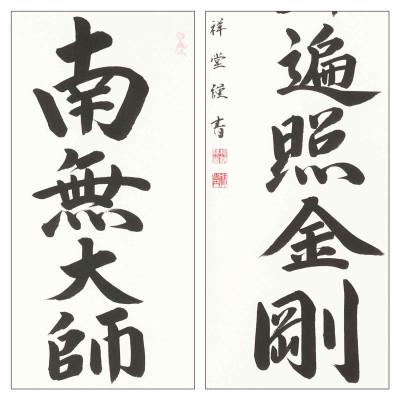 南無大師
遍照金剛
祥堂謹書